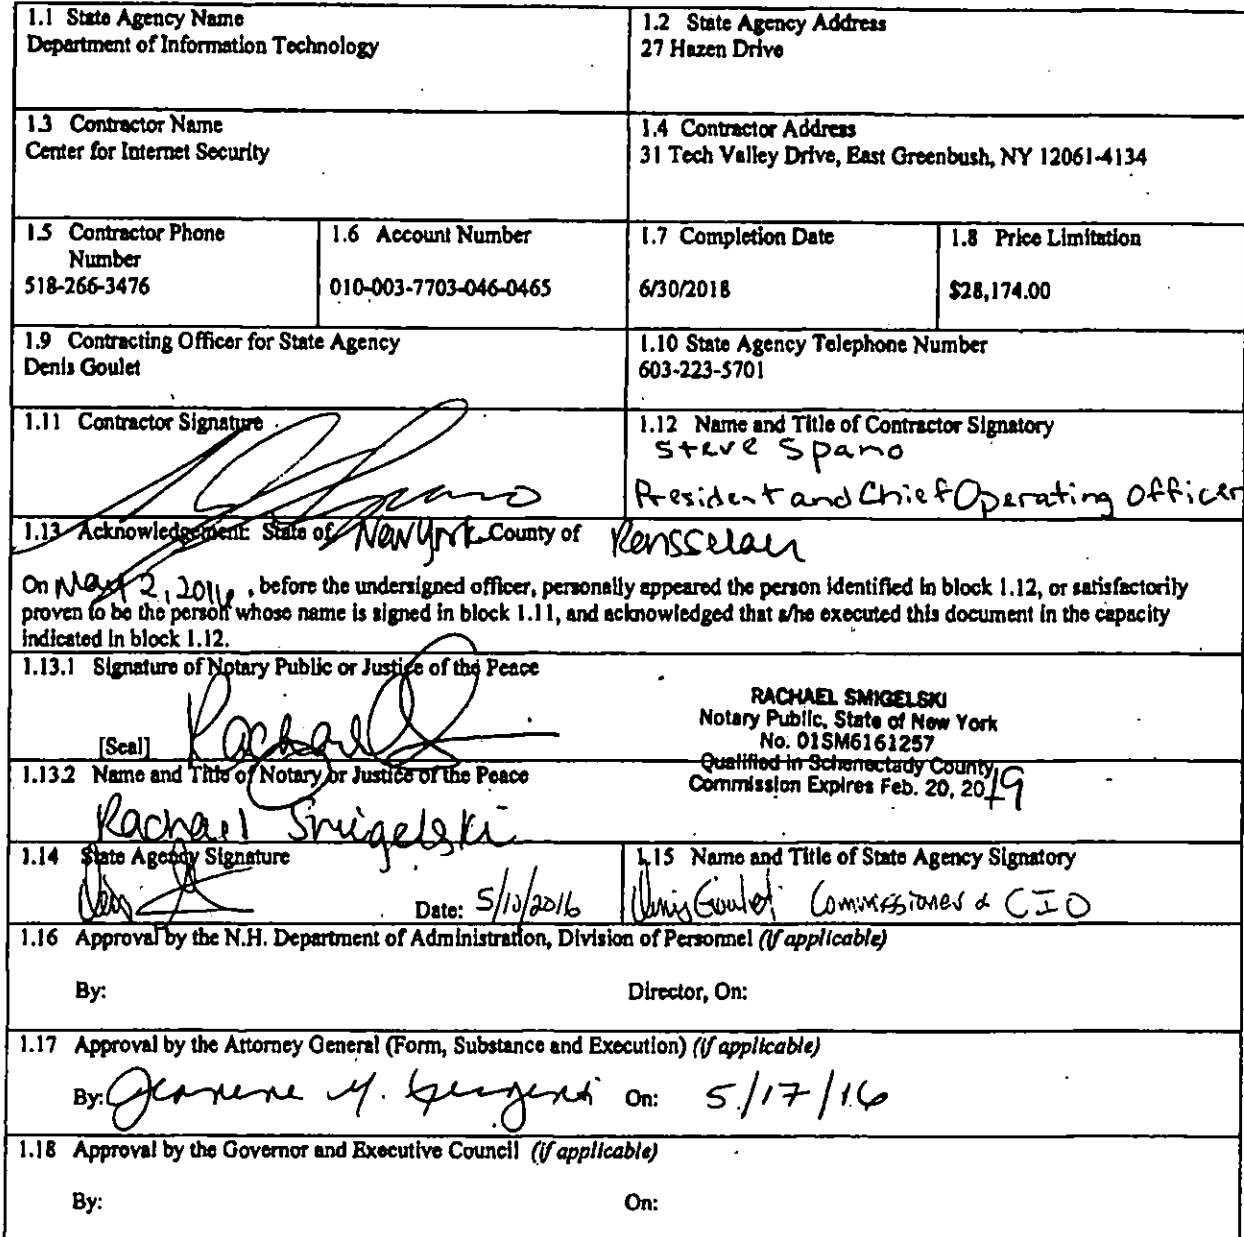 1.1 State Agency Name
Department of Information Technology
1.2 State Agency Address
27 Hazen Drive
1.3 Contractor Name
Center for Internet Security
1.4 Contractor Address
31 Tech Valley Drive, East Greenbush, NY 12061-4134
1.5 Contractor Phone
Number
518-266-3476
1.6 Account Number
010-003-7703-046-0465
1.7 Completion Date
6/30/2018
1.8 Price Limitation
$28,174.00
1.9 Contracting Officer for State Agency
Denis Goulet
1.10 State Agency Telephone Number
603-223-5701
1.11 Contractor Signature
1.12 Name and Title of Contractor Signatory
Steve Spano
President and Chief Operating Officer
1.13 Acknowledgement: State of New York County of Rensselaer
On May 2, 2016, before the undersigned officer, personally appeared the person identified in block 1.12, or satisfactorily
proven to be the person whose name is signed in block 1.11, and acknowledged that s/he executed this document in the capacity
indicated in block 1.12.
1.13.1 Signature of Notary Public or Justice of the Peace
[Seal] Rachael
RACHAEL SMIGELSKI
Notary Public, State of New York
No. 01SM6161257
Qualified in Schenectady County
Commission Expires Feb. 20, 2019
1.13.2 Name and Title of Notary or Justice of the Peace
Rachael Smigelski
1.14 State Agency Signature
Date: 5/10/2016
1.15 Name and Title of State Agency Signatory
Denis Goulet, Commissioner & CIO
1.16 Approval by the N.H. Department of Administration, Division of Personnel (if applicable)
By:
Director, On:
1.17 Approval by the Attorney General (Form, Substance and Execution) (if applicable)
By: On: 5/17/16
1.18 Approval by the Governor and Executive Council (if applicable)
By:
On: